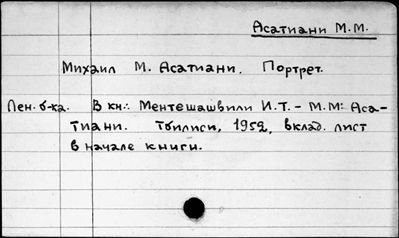 Асатиани М.М.
Михаил М. Асатиани. Портрет.
Лен. б-ка. В кн.: Ментешашвили И.Т. - М.М. Аса-
тиани. Тбилиси, 1952, вклад. лист
в начале книги.